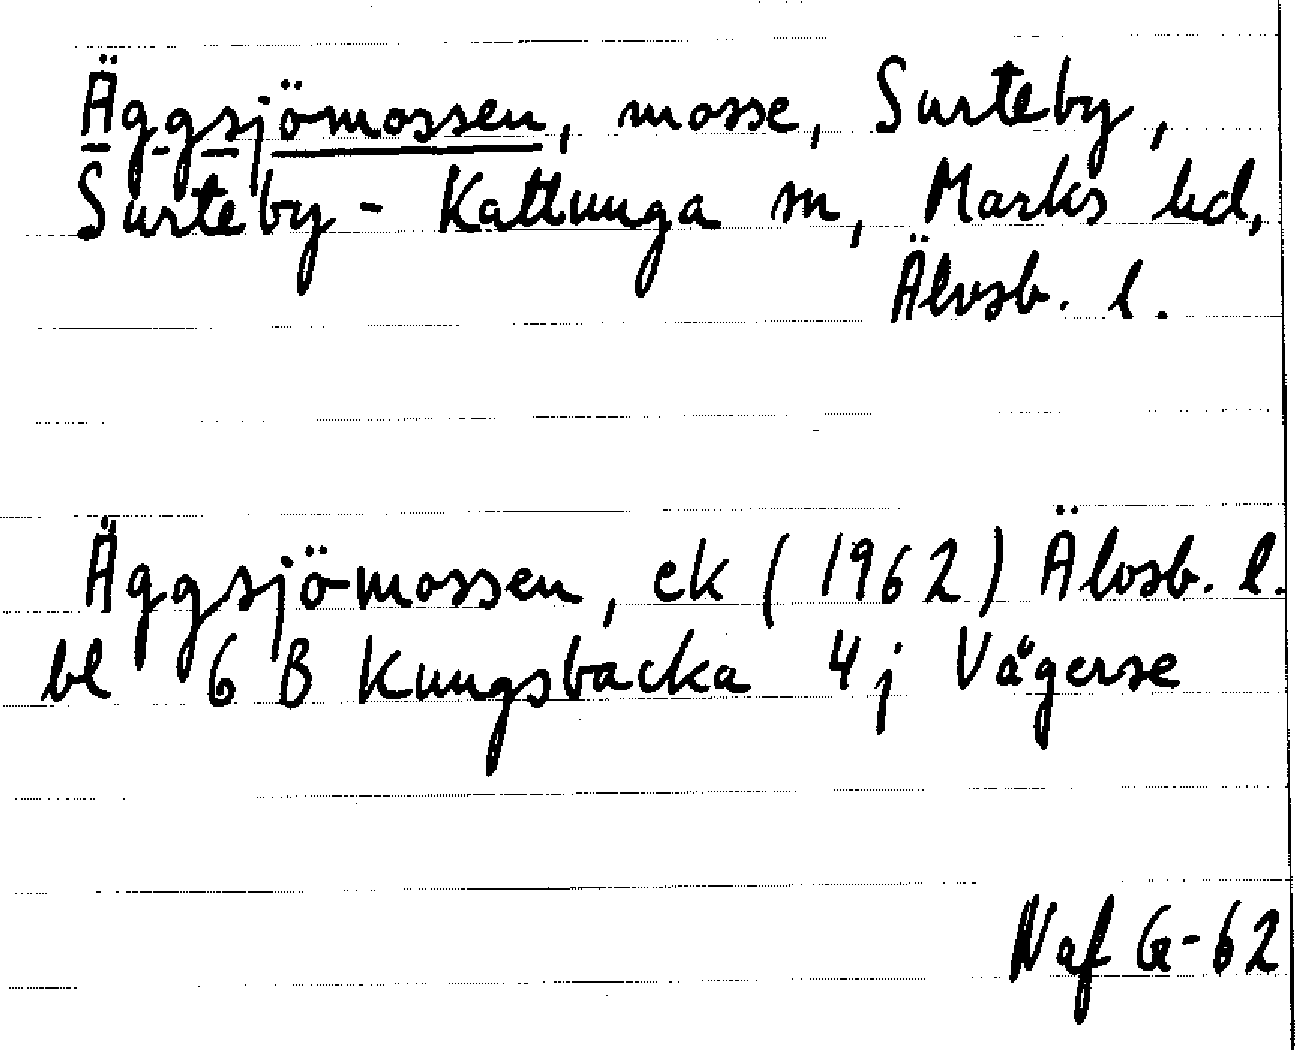 Äggsjömossen, mosse, Surteby,
Surteby - Kattunga sn, Marks hd,
Älvsb. l.
Äggsjömossen, ek (1962) Älvsb. l.
bl 6 B Kungsbacka 4 j Vägerse
Naf G-62